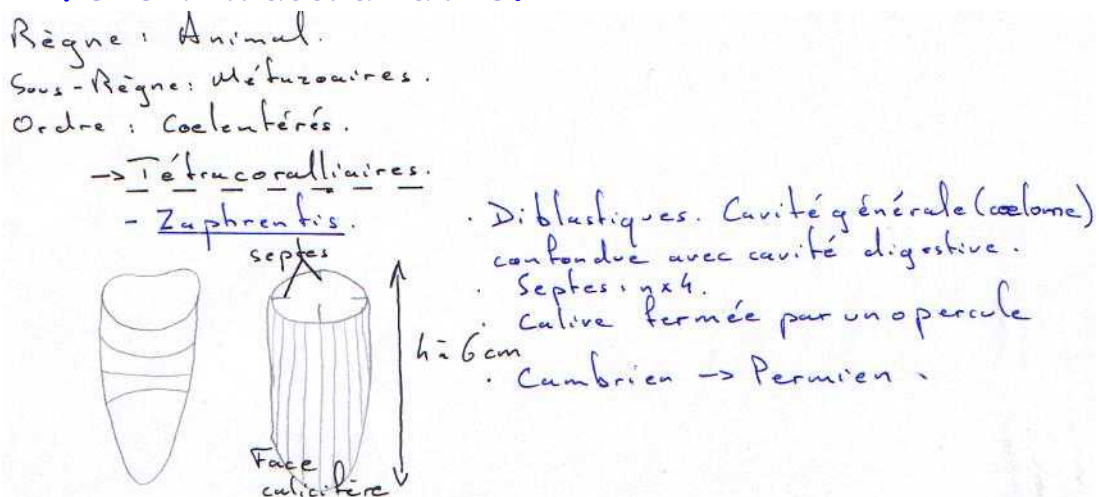 Règne : Animal.
Sous-Règne : Métazoaires.
Ordre : Coelentérés.
→ Tétracoralliaires.
- Zaphrentis.
septes
h à 6 cm
Face
calicifère
. Diblastiques. Cavité générale (cœlome)
confondue avec cavité digestive.
. Septes : n x 4.
. Calice fermée par un opercule
. Cambrien -> Permien.